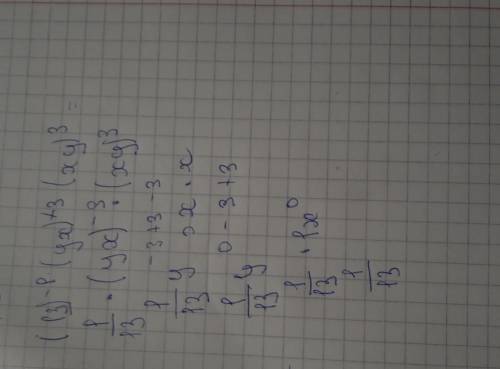 (13)⁻¹ (yx)⁺³ (xy)³ =
1/13 · (yx)⁻³ · (xy)³
1/13 y⁻³⁺³ x⁻³ · x
1/13 y⁰ ⁻³⁺³
1/13 · 1x⁰
1/13